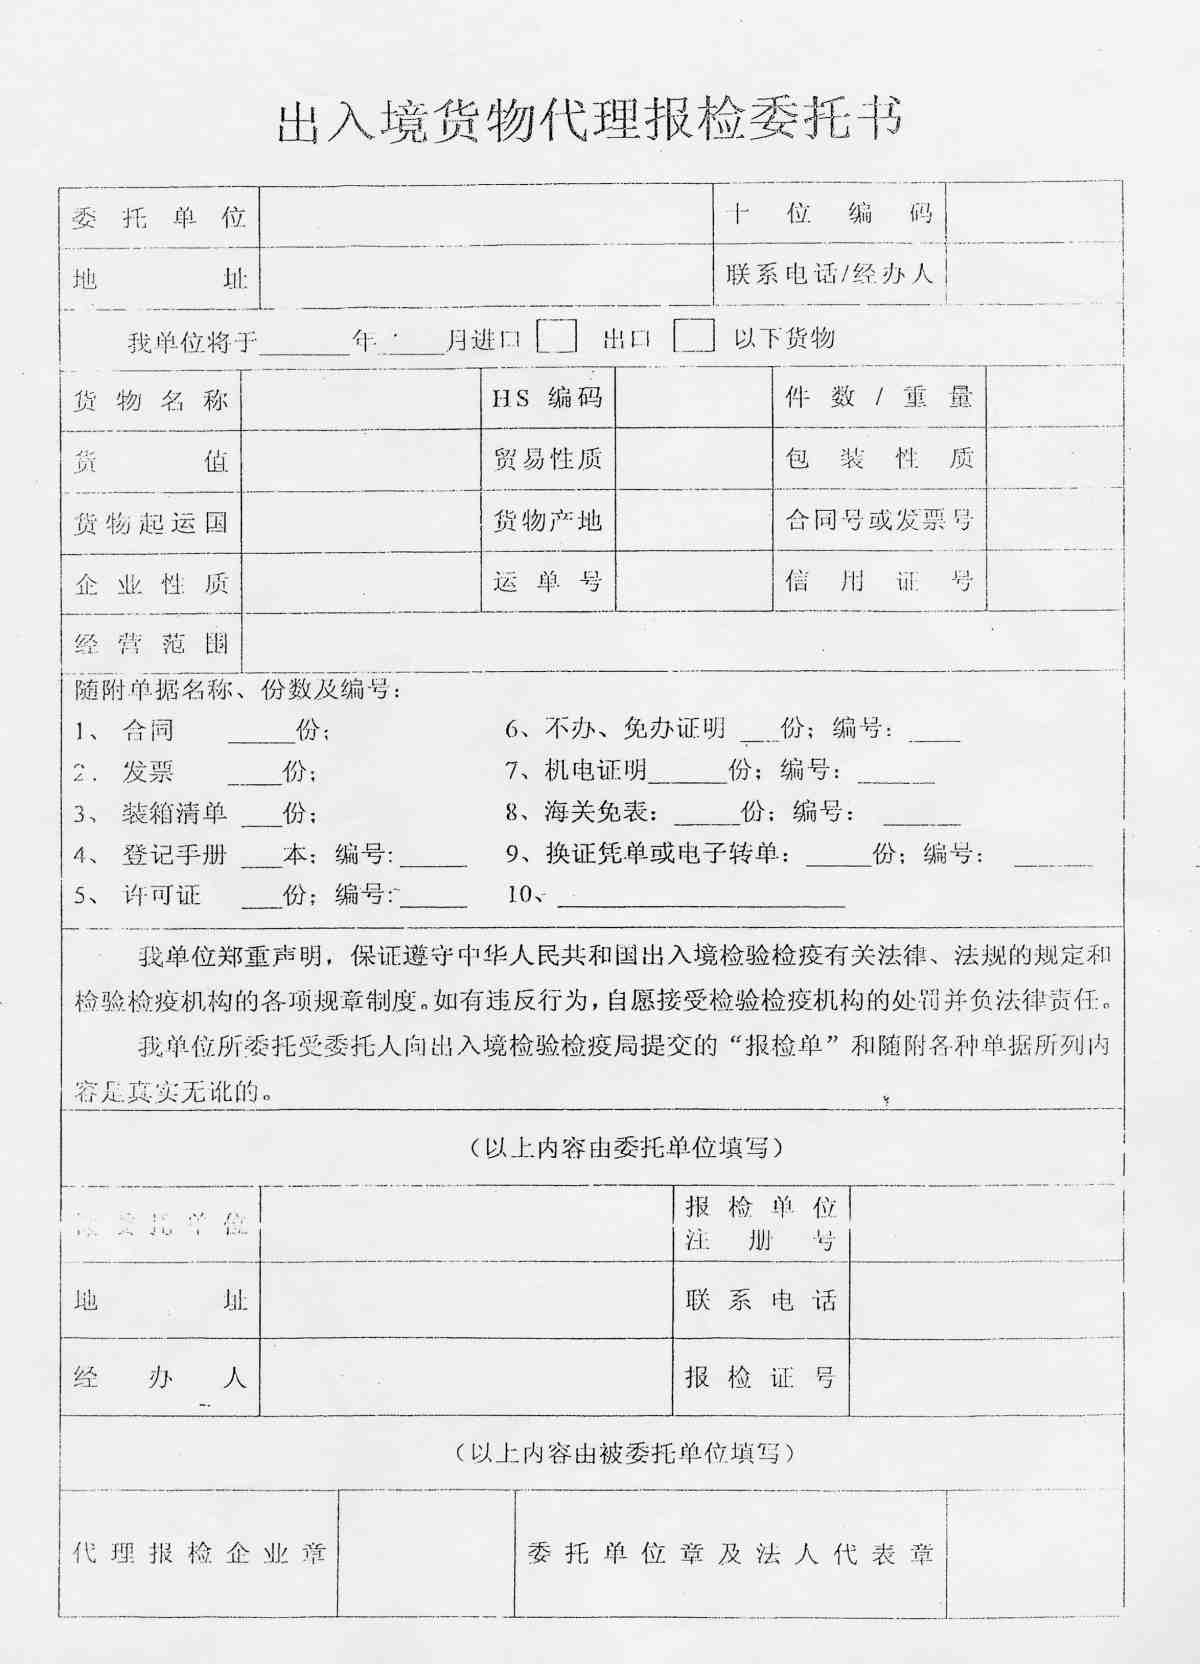 出入境货物代理报检委托书
委托单位 十位编码
地址 联系电话/经办人
我单位将于______年______月进口□ 出口□ 以下货物
货物名称 HS编码 件数/重量
货值 贸易性质 包装性质
货物起运国 货物产地 合同号或发票号
企业性质 运单号 信用证号
经营范围
随附单据名称、份数及编号:
1、合同 _____份; 6、不办、免办证明 ___份; 编号: ____
2. 发票 ____份; 7、机电证明______份; 编号: ______
3、装箱清单 ___份; 8、海关免表: _____份; 编号: ______
4、登记手册 ___本; 编号:_____ 9、换证凭单或电子转单: _____份; 编号: ______
5、许可证 ___份; 编号:_____ 10、______________________
我单位郑重声明，保证遵守中华人民共和国出入境检验检疫有关法律、法规的规定和
检验检疫机构的各项规章制度。如有违反行为，自愿接受检验检疫机构的处罚并负法律责任。
我单位所委托受委托人向出入境检验检疫局提交的“报检单”和随附各种单据所列内
容是真实无讹的。
（以上内容由委托单位填写）
被委托单位 报检单位
注册号
地址 联系电话
经办人 报检证号
（以上内容由被委托单位填写）
代理报检企业章 委托单位章及法人代表章